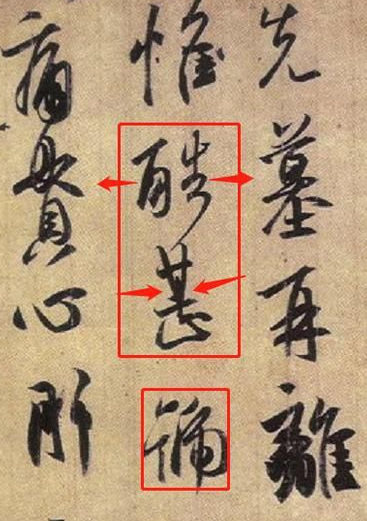 先墓再離
惟酷甚號
痛貫心肝